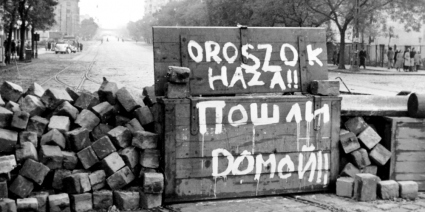 OROSZOK
HAZA!!!
Пошли
Домой!!!